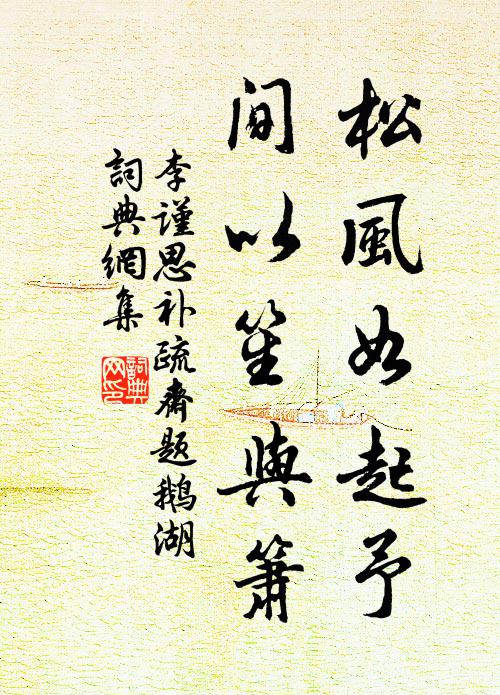 松風如起予
間以笙與簫
李謹思补疏齋題鹅湖
詞典網集
詞典网印